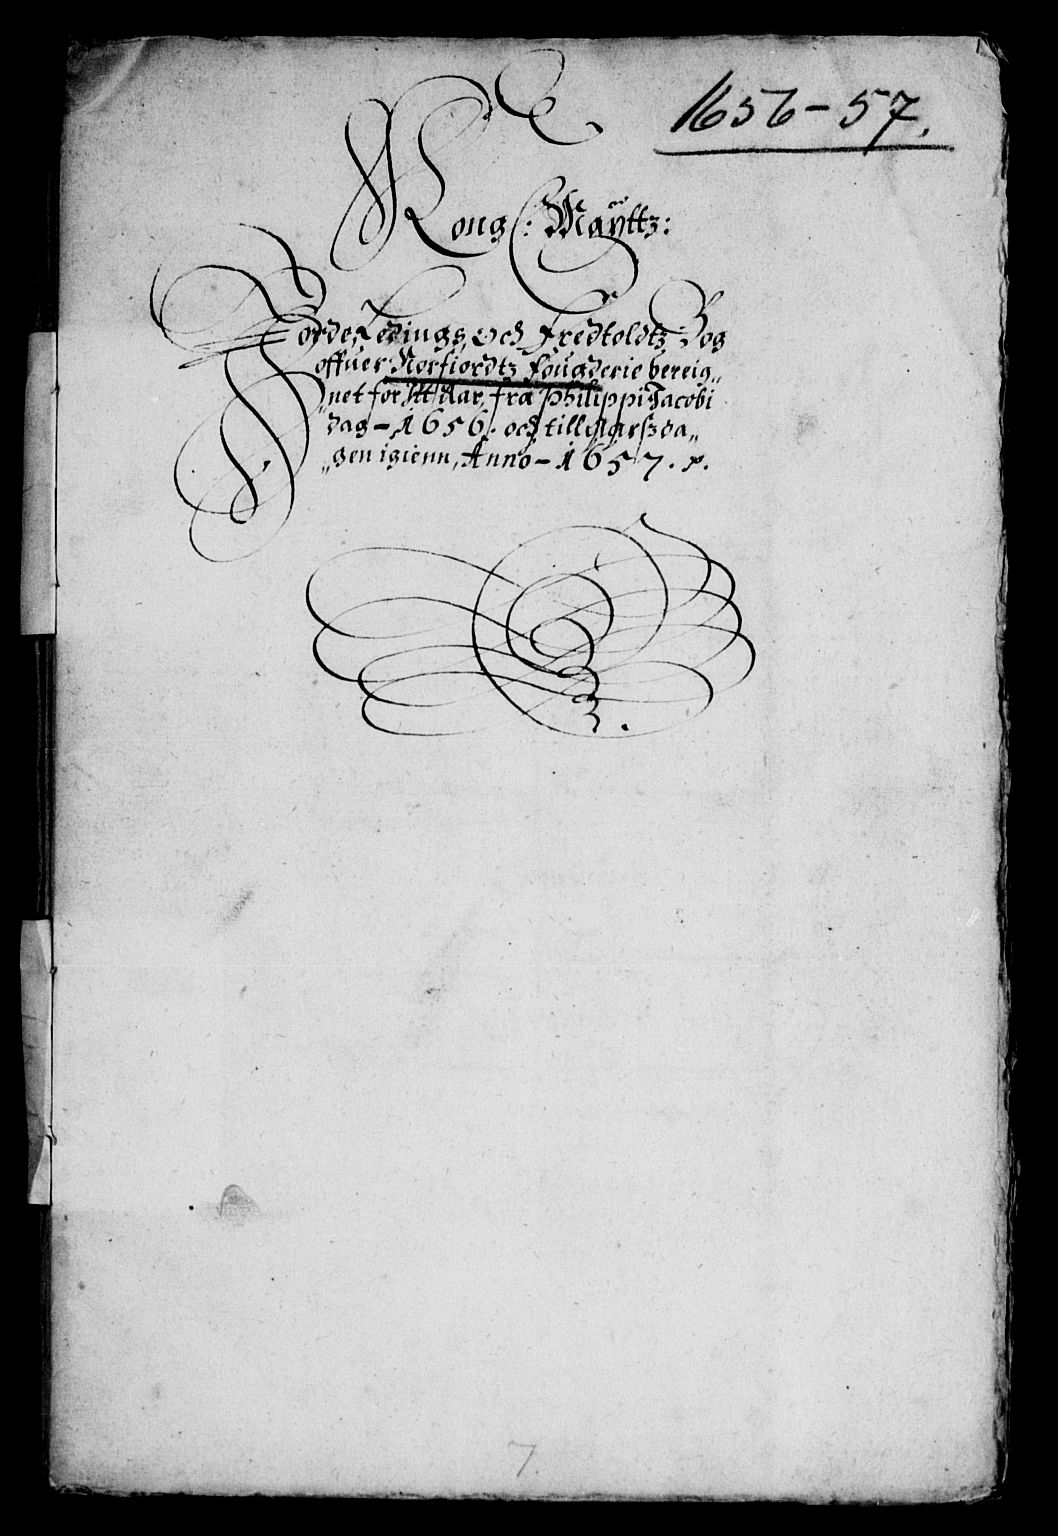 1656-57.
Kong: Maÿttz:
Jorde, Ledings, och Fredtoldtz Bog
offuer Norfiordtz Fougderie bereig„
„net for Itt Aar, fra Philippi Jacobi
dag - 1656. och till Aarszda„
„gen igienn, Anno - 1657. p.
7